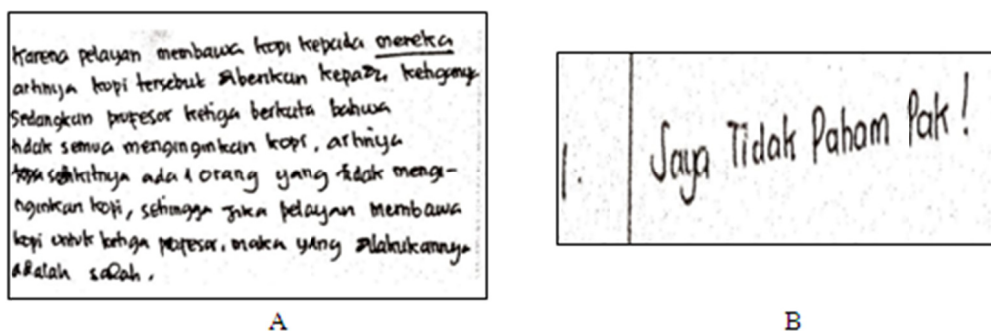 Karena pelayan membawa kopi kepada mereka
artinya kopi tersebut diberikan kepada ketiganya
Sedangkan profesor ketiga berkata bahwa
tidak semua menginginkan kopi, artinya
sedikitnya ada 1 orang yang tidak mengi-
nginkan kopi, sehingga jika pelayan membawa
kopi untuk ketiga profesor, maka yang dilakukannya
adalah salah.
A
1. Saya Tidak Paham Pak!
B